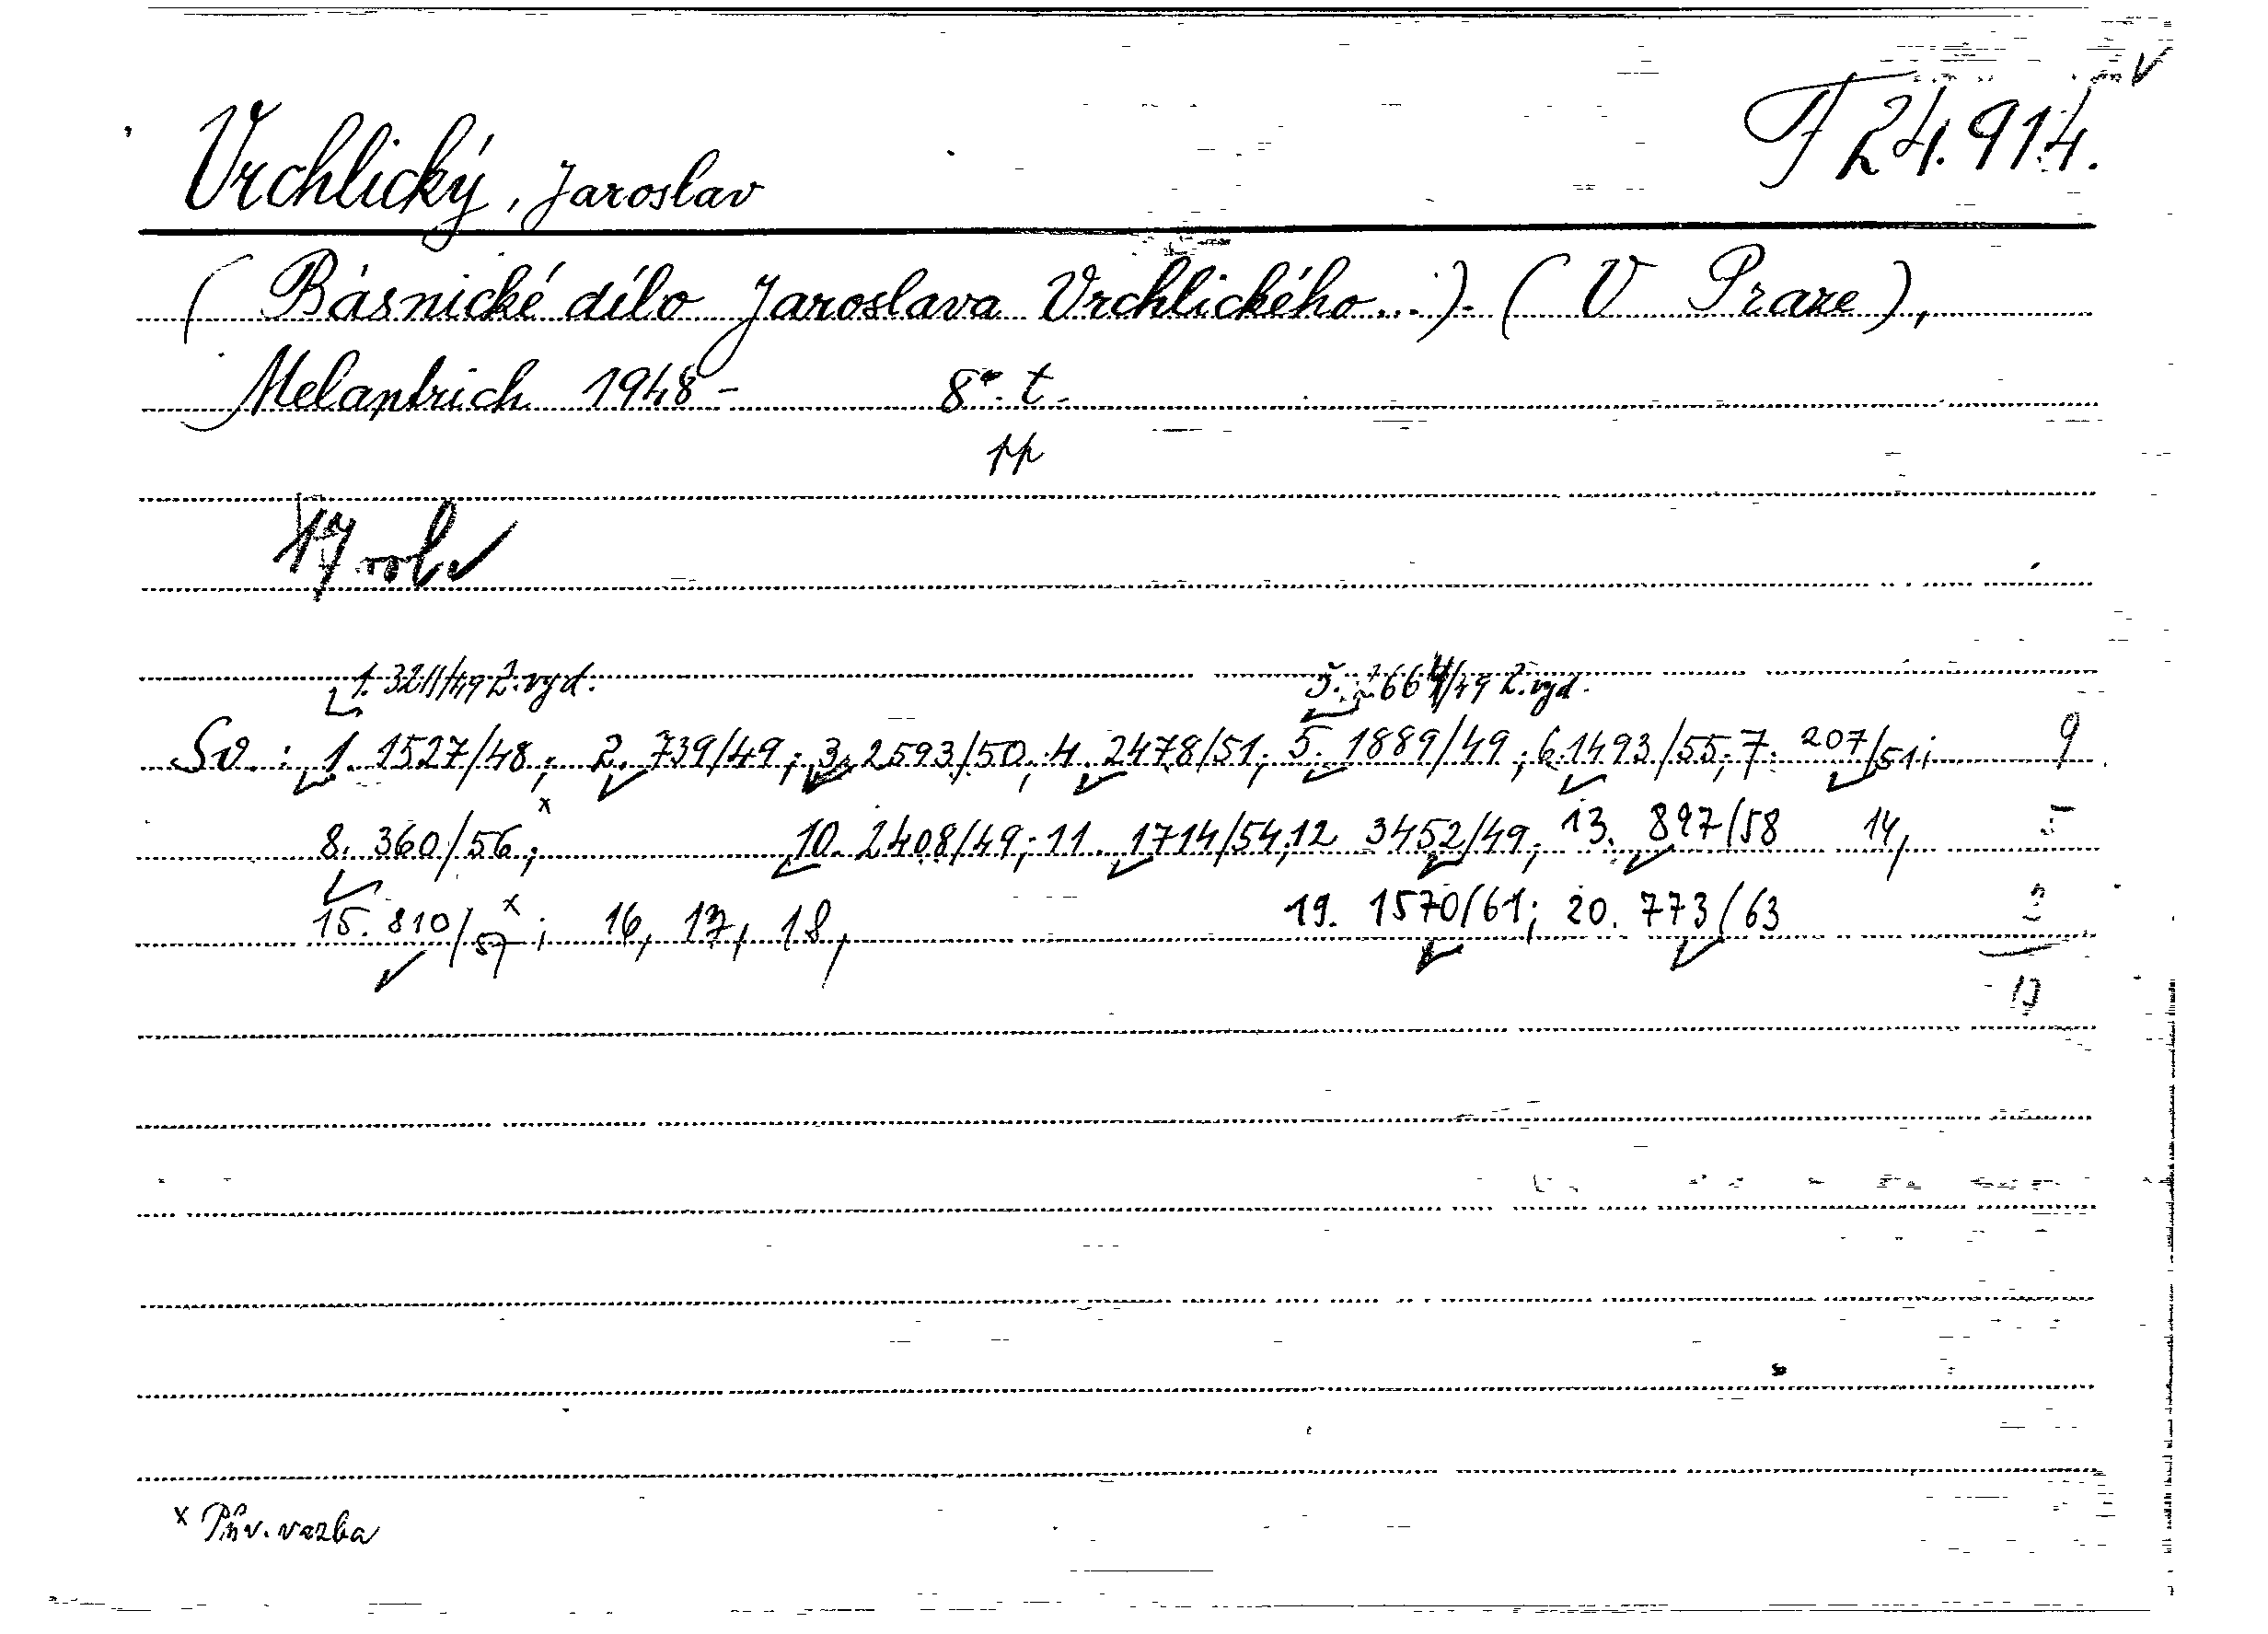 Vrchlický, Jaroslav
F 24.914.
(Básnické dílo Jaroslava Vrchlického...). (V Praze),
Melantrich 1948- 8°. t.
17
1. 3211/49 2. vyd. 5. 2. vyd.
Sv.: 1. 1527/48; 2. 739/49; 3. 2593/50, 4. 2478/51; 5. 1889/49; 6. 1493/55; 7. 207/51; 9
8. 360/56;x 10. 2408/49; 11. 1714/54; 12 3452/49; 13. 897/58 14, 5
15. 810/57x; 16, 17, 18, 19. 1570/61; 20. 773/63 3
17
x Pův. vazba